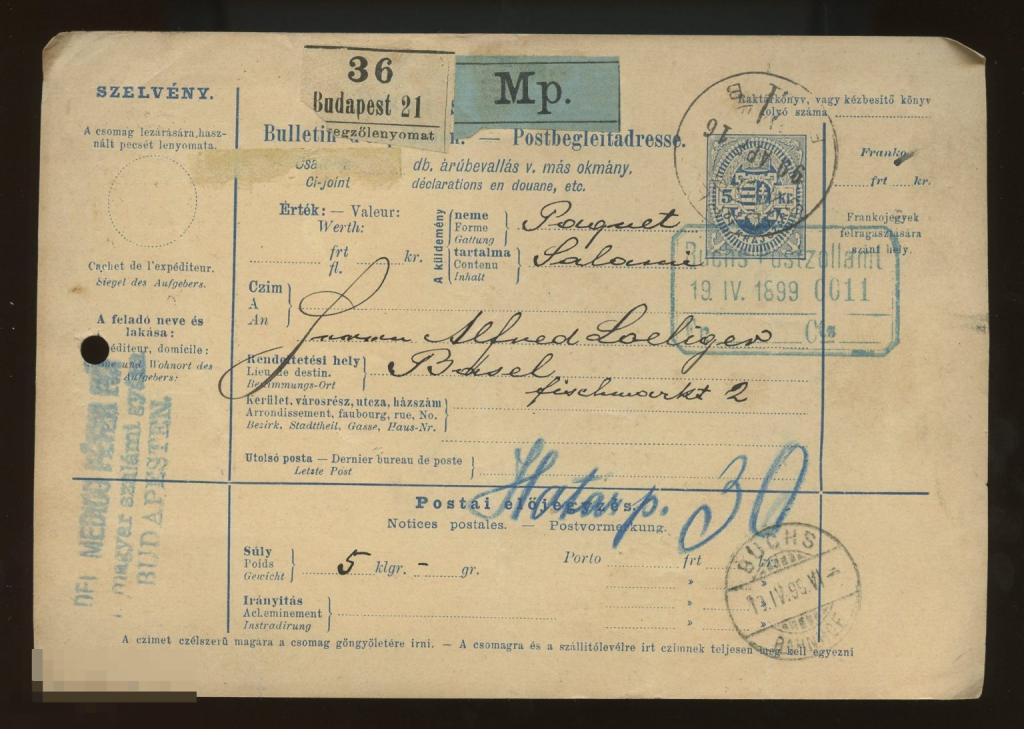 SZELVÉNY.
A csomag lezárására, hasz-
nált pecsét lenyomata.
Cachet de l'expéditeur.
Siegel des Aufgebers.
A feladó neve és
lakása:
éditeur, domicile:
und Wohnort des
Aufgebers:
magyar szalámi gyára
BUDAPESTEN.
36
Budapest 21
Mp.
Bulletin
Postbegleitadresse.
db. árúbevallás v. más okmány.
Ci-joint déclarations en douane, etc.
Érték: — Valeur:
Werth:
frt
fl. kr.
A küldemény
neme
Forme
Gattung
Paquet
tartalma
Contenu
Inhalt
Salami
Czim
A
An
Herrn Alfred Loeliger
Rendeltetési hely
Lieu de destin.
Bestimmungs-Ort
Basel
fischmarkt 2
Kerület, városrész, utcza, házszám
Arrondissement, faubourg, rue, No.
Bezirk, Stadttheil, Gasse, Haus-Nr.
Utolsó posta — Dernier bureau de poste
Letzte Post
Határp. 30
Postai előjegyzés.
Notices postales. — Postvormerkung.
Súly
Poids
Gewicht
5 klgr. – gr.
Porto frt
Irányitás
Acheminement
Instradirung
A czimet czélszerű magára a csomag göngyöletére irni. — A csomagra és a szállitólevélre irt czimnek teljesen meg kell egyezni
Raktárkönyv, vagy kézbesitő könyv
folyó száma
Franko
frt kr.
Frankojegyek
felragasztására
szánt hely.
5 kr.
Buchs Postzollamt
19. IV. 1899 0011
Fr. Cts
BUCHS
BAHNHOF